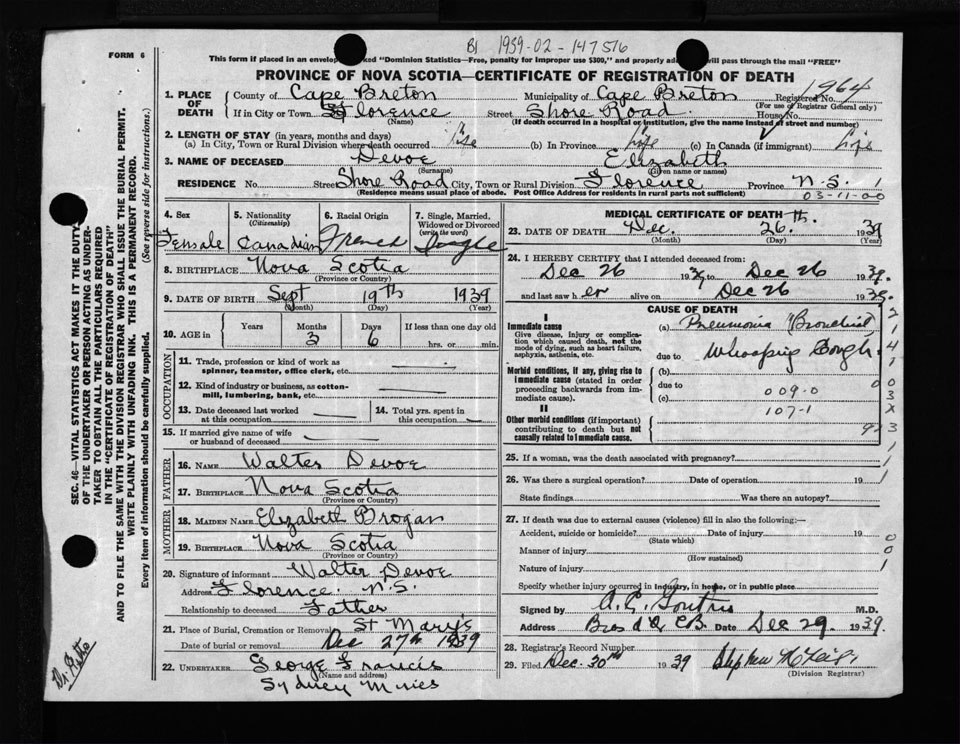 B1 1939-02-147516
FORM 6
This form if placed in an envelop ked "Dominion Statistics—Free, penalty for improper use $300," and properly ad will pass through the mail "FREE"
PROVINCE OF NOVA SCOTIA—CERTIFICATE OF REGISTRATION OF DEATH
1. PLACE OF DEATH County of Cape Breton Municipality of Cape Breton Registered No. 1964
(For use of Registrar General only)
If in City or Town Florence Street Shore Road House No.
(Name) (If death occurred in a hospital or institution, give the name instead of street and number)
2. LENGTH OF STAY (in years, months and days)
(a) In City, Town or Rural Division where death occurred Life (b) In Province Life (c) In Canada (if immigrant) Life
3. NAME OF DECEASED Devoe Elizabeth
(Surname) (Given name or names)
RESIDENCE No. Street Shore Road City, Town or Rural Division Florence Province N.S. 1
(Residence means usual place of abode. Post Office Address for residents in rural parts not sufficient) 03-11-00
4. Sex 5. Nationality (Citizenship) 6. Racial Origin 7. Single, Married, Widowed or Divorced (write the word)
Female Canadian French Single
8. BIRTHPLACE Nova Scotia
(Province or Country)
9. DATE OF BIRTH Sept 19th 1939
(Month) (Day) (Year)
10. AGE in Years Months Days If less than one day old
3 6 hrs. or min.
OCCUPATION
11. Trade, profession or kind of work as
spinner, teamster, office clerk, etc.
12. Kind of industry or business, as cotton-
mill, lumbering, bank, etc.
13. Date deceased last worked at this occupation 14. Total yrs. spent in this occupation
15. If married give name of wife
or husband of deceased
FATHER
16. NAME Walter Devoe
17. BIRTHPLACE Nova Scotia
(Province or Country)
MOTHER
18. MAIDEN NAME Elizabeth Brogan
19. BIRTHPLACE Nova Scotia
(Province or Country)
20. Signature of informant Walter Devoe
Address Florence. N.S.
Relationship to deceased Father
21. Place of Burial, Cremation or Removal St Mary's
Date of burial or removal Dec 27th 1939
22. UNDERTAKER George Francis
(Name and address)
Sydney Mines
MEDICAL CERTIFICATE OF DEATH
23. DATE OF DEATH Dec. 26th. 1939
(Month) (Day) (Year)
24. I HEREBY CERTIFY that I attended deceased from:
Dec 26 1939 to Dec 26 1939.
and last saw her alive on Dec 26 1939.
CAUSE OF DEATH
I
Immediate cause (a) Pneumonia Bronchial
Give disease, injury or complica-
tion which caused death, not the
mode of dying, such as heart failure,
asphyxia, asthenia, etc.
due to Whooping Cough
Morbid conditions, if any, giving rise to (b)
immediate cause (stated in order
proceeding backwards from im-
mediate cause).
due to 009.0
(c)
II 107-1
Other morbid conditions (if important)
contributing to death but not
causally related to immediate cause.
25. If a woman, was the death associated with pregnancy?
26. Was there a surgical operation? Date of operation 19
State findings Was there an autopsy?
27. If death was due to external causes (violence) fill in also the following:—
Accident, suicide or homicide? Date of injury 19
(State which)
Manner of injury
(How sustained)
Nature of injury
Specify whether injury occurred in industry, in home, or in public place
Signed by M.D.
Address Date Dec 29. 1939
28. Registrar's Record Number
29. Filed Dec. 30th 1939 Stephen
(Division Registrar)
SEC. 46—VITAL STATISTICS ACT MAKES IT THE DUTY
OF THE UNDERTAKER OR PERSON ACTING AS UNDER-
TAKER TO OBTAIN ALL THE PARTICULARS REQUIRED
IN THE "CERTIFICATE OF REGISTRATION OF DEATH"
AND TO FILE THE SAME WITH THE DIVISION REGISTRAR WHO SHALL ISSUE THE BURIAL PERMIT.
WRITE PLAINLY WITH UNFADING INK. THIS IS A PERMANENT RECORD.
Every item of information should be carefully supplied. (See reverse side for instructions.)